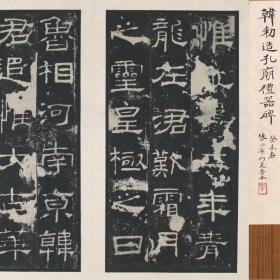 韓勑造孔廟禮器碑
癸未春
惟年青
龍在涒歎霜月
之靈皇極之日
魯相河南京韓
君追惟太古華